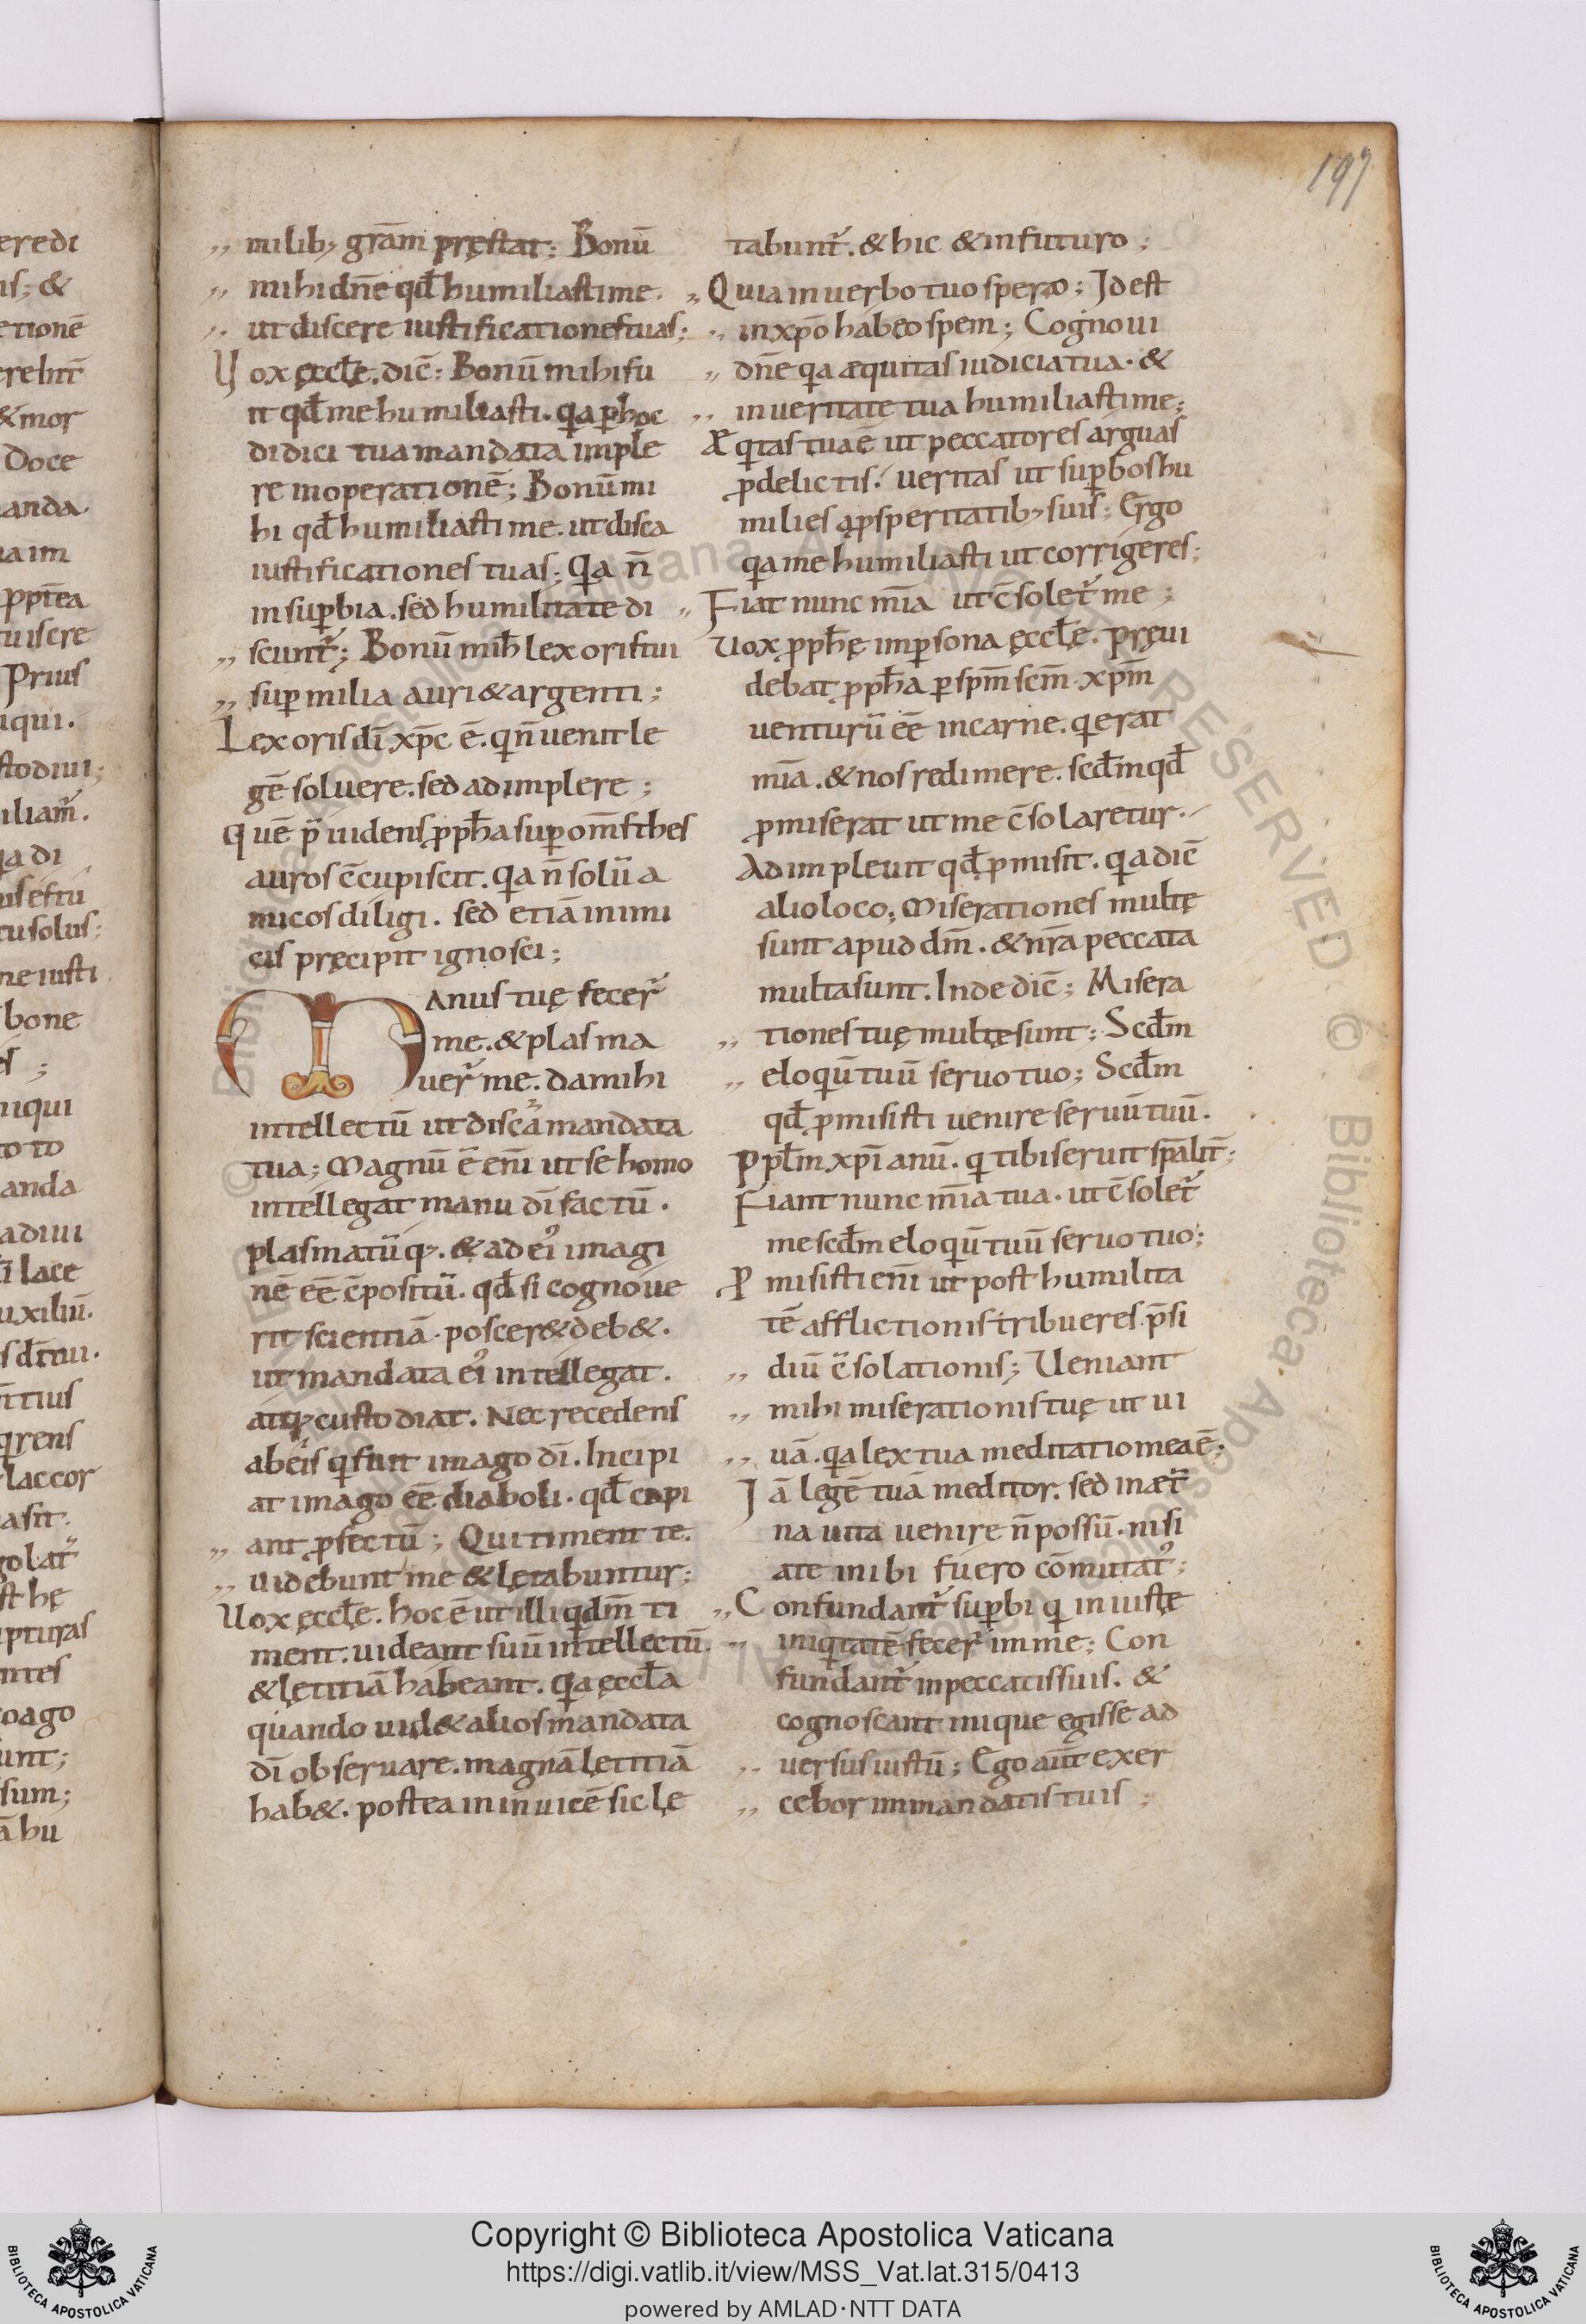 197
eredi
is; &
etionē
erehnt̄
& mor
Doce
anda
ua im
p̄pt̄ea
uiscre
Prius
iqui.
stodiui;
iliam̄.
qa di
tu solus;
ne iusti
bone
niqui
to to
anda
adiui
lace
uxiliū.
tius
qrens
laccor
asit.
golat̄
st hę
ipturas
ntes
oago
unt;
sum;
ā hu
„ milib; grām pręstat; Bonū
„ mihi dn̄e qđ humiliasti me.
„ ut discere iustificationes tuas;
Vox ęccłę. dic̄: Bonū mihi fu
it qđ me humiliasti. qa p hoc
didici tua mandata imple
re in operationē; Bonū mi
hi qđ humiliasti me. ut discā
iustificationes tuas; Qa n̄
in supbia. sed humilitate di
„ scunt̄; Bonū mih̄ lex oris tui
„ sup milia auri & argenti;
Lex oris dī. xp̄c ē. q n̄ uenit le
gē soluere. sed adimplere;
Quē p̄uidens ppħa sup om̄s thes
auros c̄cupiscit. qa n̄ solū a
micos diligi. sed etiā inimi
cis pręcipit ignosci;
Manus tuę fecer̄
me. & plasma
uer̄ me. da mihi
intellectū ut discā mandata
tua; Magnū ē eni̅ ut se homo
intellegat manu dī factū.
plasmatūq;. & ad ei' imagi
nē ēē c̄positū. qđ si cognoue
rit scientiā. poscer& deb&.
ut mandata ei' intellegat.
atq; custodiat. Nec recedens
ab eis q fuit imago dī. Incipi
at imago ēē diaboli. qđ capi
„ ant pfectū; Qui timent te.
„ uidebunt me & lętabuntur;
Vox ęccłę. hoc ē ut illi q dm̄ ti
ment. uideant suū intellectū.
& lętitiā habeant. Qa ęccła
quando uid& alios mandata
dī obseruare. magnā lętitiā
hab&. postea in inuicē sic lę
tabunt̄. & hic & in futuro;
„ Quia in uerbo tuo spero; Id est
„ in xp̄o habeo spem; Cognoui
„ dn̄e qa æquitas iudicia tua. &
„ in ueritate tua humiliasti me;
Æqtas tua ē ut peccatores arguas
p delictis. ueritas ut supbos hu
milies p pspertatib; suis; Ergo
qa me humiliasti ut corrigeres;
„ Fiat nunc mīa ut c̄solet̄ me;
Vox ppħę imp sona ęccłę. pręui
debat ppħa p spm̄ scm̄. xp̄m
venturū ēē in carne. q erat
mīa. & nos redimere. scđm qđ
pmiserat ut me c̄solaretur.
Adimpleuit qđ pmisit. qa dic̄
alio loco; Miserationes multę
sunt apud dm̄. & nr̄a peccata
multa sunt. Inde dic̄; Misera
„ tiones tuę multę sunt; Scđm
„ eloqū tuū seruo tuo; Scđm
qđ pmisisti uenire seruū tuū.
Ppłm xp̄ianū. q tibi seruit spāłit̄;
Fiant nunc mīa tua. ut c̄solet̄
me scđm eloqū tuū seruo tuo;
P misisti eni̅ ut post humilita
tē afflictionis tribueres p̄si
„ diū c̄solationis; Veniant
„ mihi miserationis tuę ut ui
„ uā. qa lex tua meditatio mea ē;
Iā legē tuā meditor. sed in æt̄
na uita uenire n̄ possū. nisi
a te inibi fuero cōmutat';
„ Confundant̄ supbi q iniuste
„ iniqtatē fecer̄ im me; Con
fundant̄ in peccatis suis. &
cognoscant inique egisse ad
„ uersus iustū; Ego aut̄ exer
„ cebor im mandatis tuis;
Copyright © Biblioteca Apostolica Vaticana
https://digi.vatlib.it/view/MSS_Vat.lat.315/0413
powered by AMLAD·NTT DATA
BIBLIOTECA APOSTOLICA VATICANA
BIBLIOTECA APOSTOLICA VATICANA